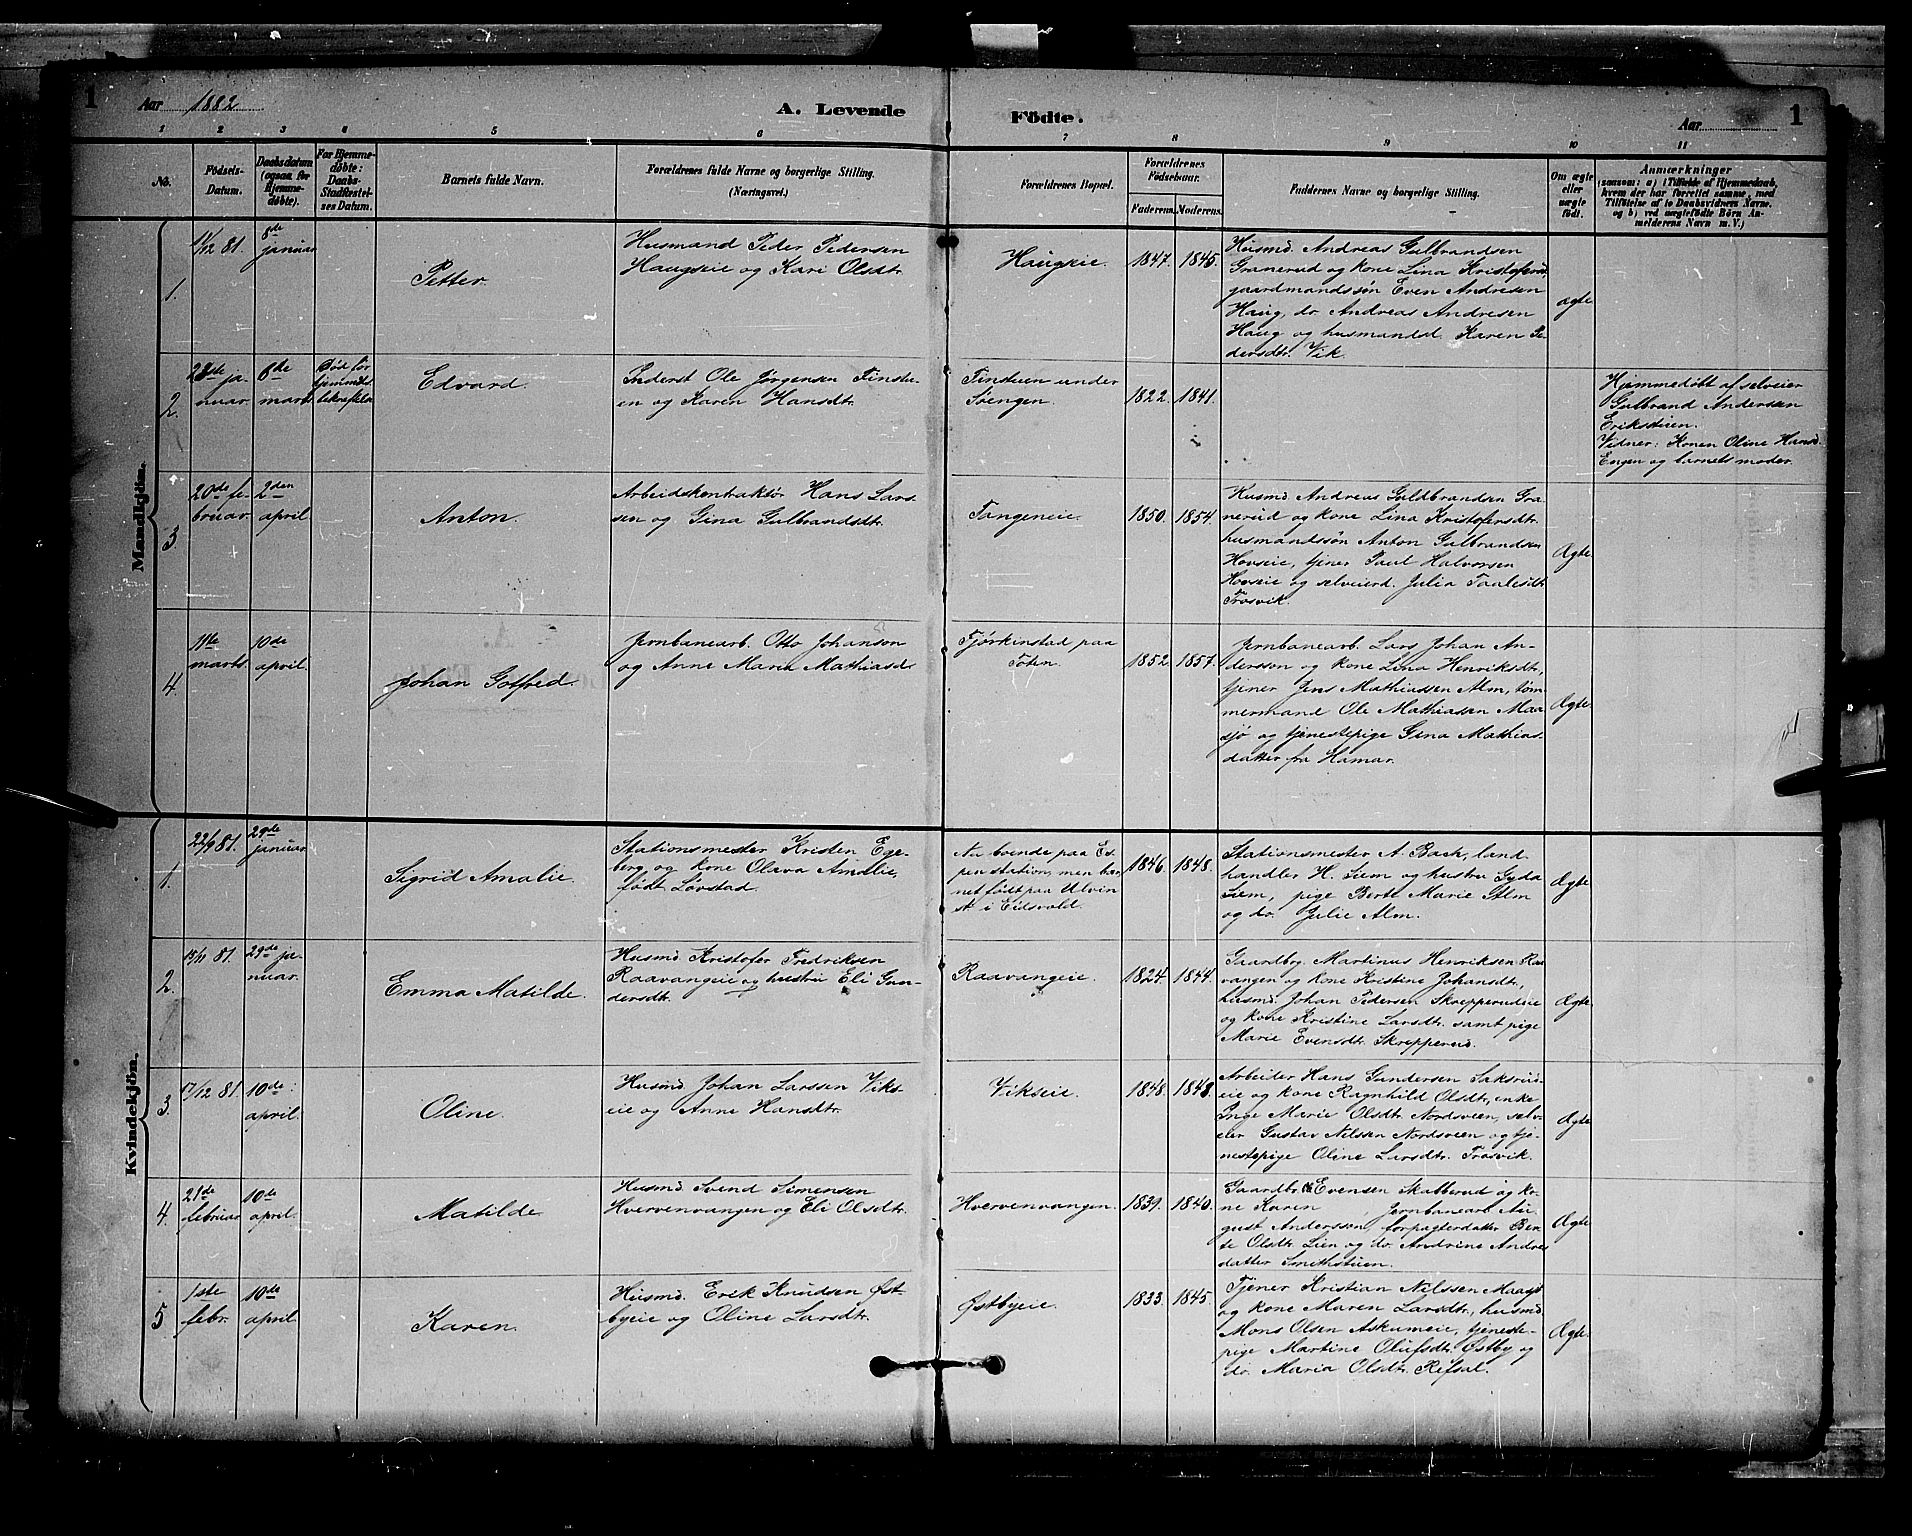 1 Aar 1882
A. Levende Födte.
Aar 1
1 2 3 4 5 6 7 8 9 10 11
No.
Födsels-
Datum.
Daabsdatum
(ogsaa for
Hjemme-
döbte).
For Hjemme-
döbte:
Daabs-
Stadfæstel-
ses Datum.
Barnets fulde Navn.
Forældrenes fulde Navne og borgerlige Stilling.
(Næringsvei.)
Forældrenes Bopæl.
Forældrenes
Födselsaar.
Faderens. Moderens.
Faddernes Navne og borgerlige Stilling.
Om ægte
eller
uægte
födt.
Anmærkninger
(saasom: a) i Tilfælde af Hjemmedaab,
hvem der har forrettet samme, med
Tilföielse af to Daabsvidners Navne.
og b) ved uægtefödte Börn An-
melderens Navn m. V.)
Mandkjön.
1.
1/12 81.
8de
januar
Petter.
Husmand Peder Pedersen
Haugseie og Kari Olsdtr.
Haugseie.
1847. 1845.
Husmd. Andreas Gulbrandsen
Granerud og kone Lina Kristofersd,
gaardmandssøn Even Andresen
Haug, do Andreas Andresen
Haug og husmandsd. Karen Pe-
dersdtr. Vik.
ægte
2.
28de ja-
nuar.
8de
marts
Død før
hjemmed.
bekræftel.
Edvard.
Inderst Ole Jørgensen Finstu-
en og Karen Hansdtr.
Finstuen under
Soengen.
1822. 1841.
Hjemmedøbt af selveier
Gulbrand Andersen
Erikstuen.
Vidner: Konen Oline Hansd.
Engen og barnets moder.
3.
20de fe-
bruar.
2den
april.
Anton.
Arbeidskontraktør Hans Lars-
sen og Gina Gulbrandsdtr.
Tangeneie.
1850. 1854.
Husmd. Andreas Guldbrandsen Gra-
nerud og kone Lina Kristofersdtr.
husmandssøn Anton Gulbrandsen
Hovseie, tjener Paul Halvorsen
Hovseie og selveierd. Julia Paulsdtr
Trosvik.
Ægte
4.
11te
marts
10de
april.
Johan Gotfred.
Jernbanearb. Otto Johanson
og Anne Maria Mathiasd.
Fjørkinstad paa
Toten.
1852 1857.
Jernbanearb. Lars Johan An-
dersson og kone Lina Henriksdtr,
tjener Jens Mathiassen Alm, tøm-
mermand Ole Mathiassen Maa-
sjø og tjenestepige Gina Mathias-
datter fra Hamar.
Ægte
Kvindekjön.
1.
22/9 81.
29de
januar.
Sigrid Amalie.
Stationsmester Kristen Ege-
berg og kone Olava Amalie,
født Løvstad.
Nu boende paa Es-
pen station, men bar-
net født paa Ulvin
st. i Eidsvold.
1846. 1848.
Stationsmester A. Bach, land-
handler H. Siem og hustru Gyda
Siem, pige Berte Marie Alm
og do. Julie Alm.
Ægte
2.
15/11 81.
29de ja-
nuar.
Emma Matilde.
Husmd. Kristofer Fredriksen
Raavangeie og hustru Eli Gun-
dersdt.
Raavangeie.
1824. 1844.
Gaardbr. Martinus Henriksen Raa-
vangen og kone Kristine Johansdtr.,
husmd. Johan Pedersen Skrepperudeie
og kone Kristine Larsdtr. samt pige
Marie Evensdtr. Skrepperud.
Ægte
3.
17/12 81.
10de
april.
Oline.
Husmd. Johan Larssen Viks-
eie og Anne Hansdtr.
Vikseie.
1848. 1848.
Arbeider Hans Gundersen Saksrud-
eie og kone Ragnhild Olsdtr, enke
Inge Marie Olsdtr. Nordsveen, selv-
eier Gustav Nilssen Nordsveen og tje-
nestepige Oline Larsdtr. Trosvik.
Ægte
4.
21de
februar
10de
april.
Matilde.
Husmd. Svend Simensen
Hvervenvangen og Eli Olsdtr.
Hvervenvangen.
1839. 1840.
Gaardbr. Evensen Skatterud og ko-
ne Karen Jernbanearb. Au-
gust Anderssen, forpagterdatter Ber-
te Olsdtr. Lien og do. Andrine Andrea-
datter Smithstuen.
Ægte
5.
1ste
febr.
10de
april.
Karen.
Husmd. Erik Knudsen Øst-
byeie og Oline Larsdtr.
Østbyeie.
1833. 1845.
Tjener Kristian Nilssen Maast
og kone Maren Larsdtr., husmd.
Mons Olsen Askumeie, tjeneste-
pige Martine Olufsdtr. Østby og
do. Maria Olsdtr. Refsal.
Ægte.